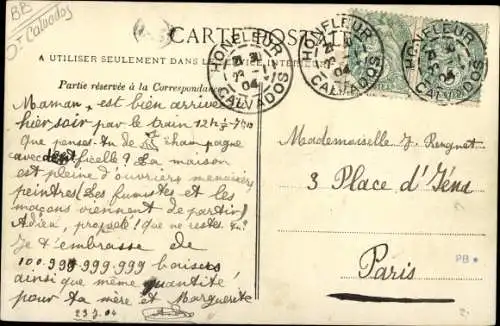 BB
Dt Calvados
CARTE POSTALE
A UTILISER SEULEMENT DANS LE SERVICE INTERIEUR
Partie réservée à la Correspondance
HONFLEUR
04
CALVADOS
HONFLEUR
04
CALVADOS
HONFLEUR
04
CALVADOS
Maman, est bien arrivée
hier soir par le train
Que penses-tu de champagne
avec ficelle? La maison
est pleine d'ouvriers menuisiers
peintres (Les fumistes et les
maçons viennent de partir)
Adieu, propreté! que ne restes-tu
Je t'embrasse de
100.999.999.999 baisers
ainsi que même quantité
pour ta mère et Marguerite
23.7.04
Mademoiselle J.
3 Place d'Iéna
Paris
PB